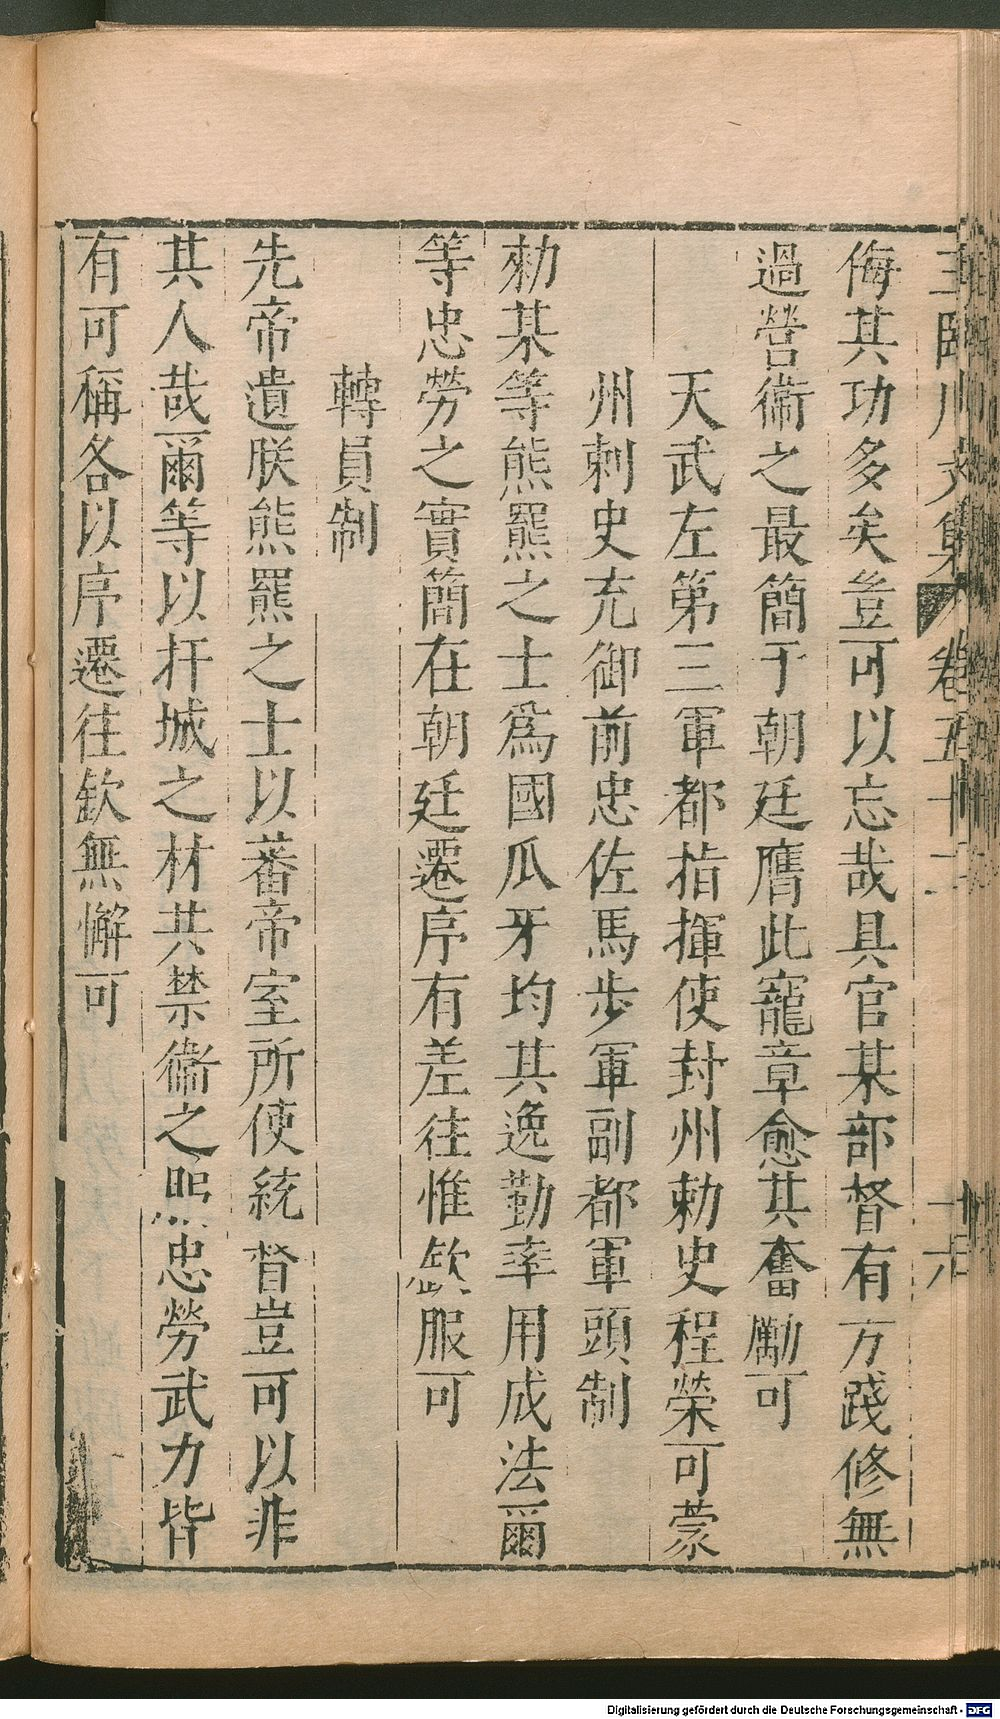 王臨川文集 卷五十二 十六
侮其功多矣豈可以忘哉具官某部督有方踐修無
過營衞之最簡于朝廷膺此寵章愈其奮勵可
天武左第三軍都指揮使封州勅史程榮可蒙
州刺史充御前忠佐馬步軍副都軍頭制
勑某等熊羆之士爲國瓜牙均其逸勤率用成法爾
等忠勞之實簡在朝廷遷序有差往惟欽服可
轉員制
先帝遺朕熊羆之士以蕃帝室所使統督豈可以非
其人哉爾等以扞城之材共禁衞之忠勞武力皆
有可稱各以序遷往欽無懈可
Digitalisierung gefördert durch die Deutsche Forschungsgemeinschaft - DFG